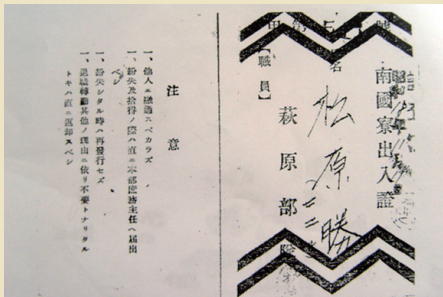 南國寮出入證
松原勝
萩原部隊
【職員】
注意
一、他人ニ融通スベカラズ
一、紛失及拾得ノ際ハ直ニ本部庶務主任ヘ届出
ベシ
一、紛失シタル時ハ再發行セズ
一、退職轉勤其他ノ理由ニ依リ不要トナリタル
トキハ直ニ返却スベシ